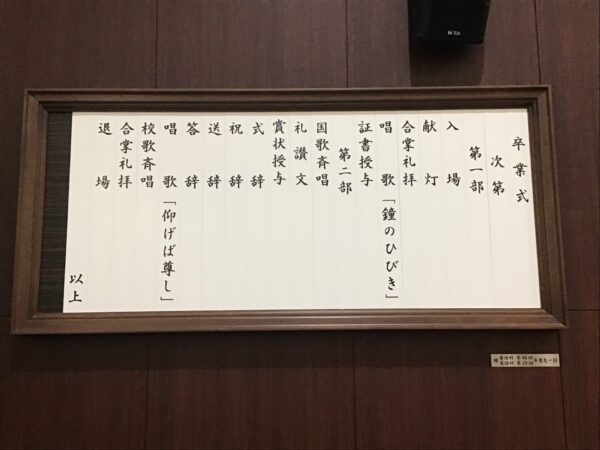 卒業式
次第
第一部
入場
献灯
合掌礼拝
唱歌「鐘のひびき」
証書授与
第二部
国歌斉唱
礼讃文
賞状授与
式辞
祝辞
送辞
答辞
唱歌「仰げば尊し」
校歌斉唱
合掌礼拝
退場
以上
卒業生一同